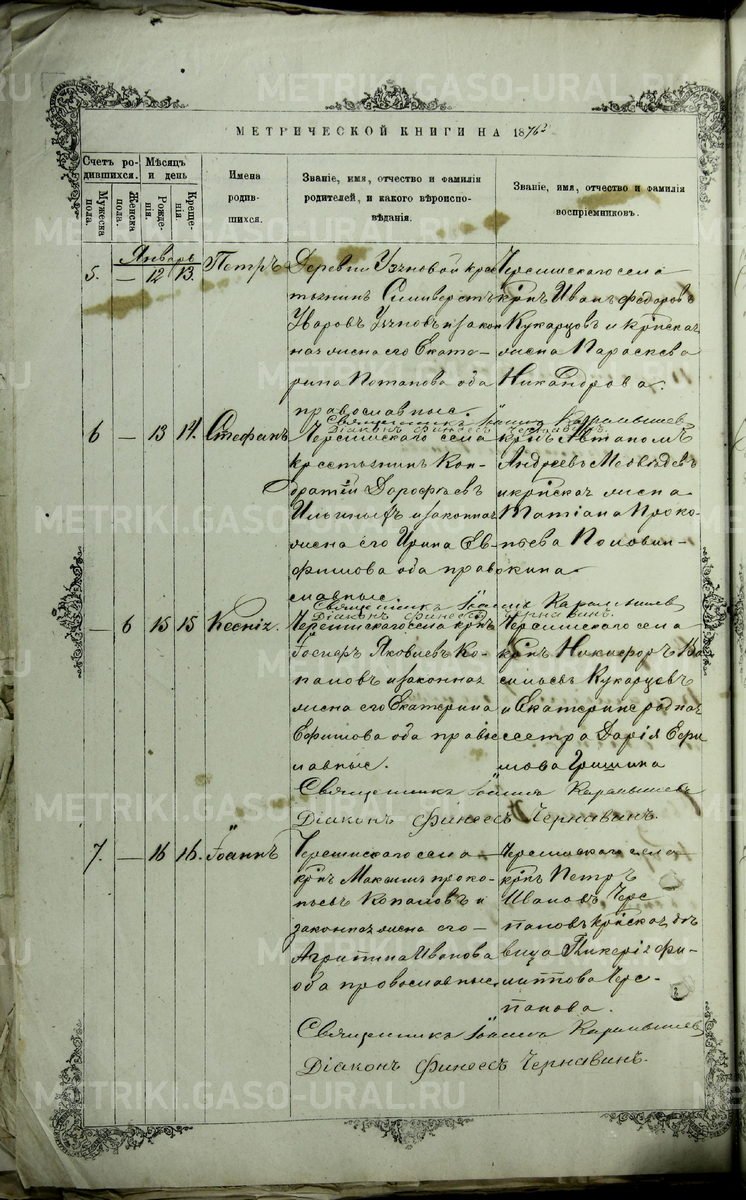 МЕТРИЧЕСКОЙ КНИГИ НА 1876
Счетъ ро-
дившихся.
Мѣсяцъ
и день
Мужеска
пола.
Женска
пола.
Рожде-
нія.
Креще-
нія.
Имена
родив-
шихся.
Званіе, имя, отчество и фамилія
родителей, и какого вѣроиспо-
вѣданія.
Званіе, имя, отчество и фамилія
воспріемниковъ.
Январь
5. — 12 13. Петръ
Деревни крес
тьянинъ Силиверстъ
Уваровъ и закон
ная жена его Екате-
рина Потапова оба
православные.
села
крнъ Иванъ Федоровъ
Кукарцовъ и крнская
жена Параскева
Никандрова.
Священникъ Іоаннъ Карамышев
Діаконъ Финеесъ Чернавинъ.
6 — 13 14. Стефанъ
села
крестьянинъ Кон-
дратій Дорофеевъ
Ильиныхъ и законная
жена его Ирина Ев-
фимова оба право
славные.
крнъ Автаномъ
Андреевъ Медвѣдевъ
и крнская жена
Татіана Проко
пьева Половин-
кина.
Священникъ Іоаннъ Карамышев
Діаконъ Финеесъ Чернавинъ.
— 6 15 15 Ксенія.
села крнъ
Іосифъ Яковлевъ Ко-
паловъ и законная
жена его Екатерина
Ефимова оба право
славные.
села
крнъ Никифоръ Ва
сильевъ Кукарцовъ
и Екатерине родная
сестра Дарія Ефи
мова Гришина
Священникъ Іоаннъ Карамышевъ
Діаконъ Финеесъ Чернавинъ.
7. — 16 16. Іоаннъ
села
крнъ Максимъ проко-
пьевъ Копаловъ и
законная жена его
Агрипина Иванова
оба провославные
села
крнъ Петръ
Ивановъ Чере
пановъ крнская дѣ
вица Гликерія Фи-
липпова Чере-
панова.
Священникъ Іоаннъ Карамышев
Діаконъ Финеесъ Чернавинъ.
METRIKI.GASO-URAL.RU